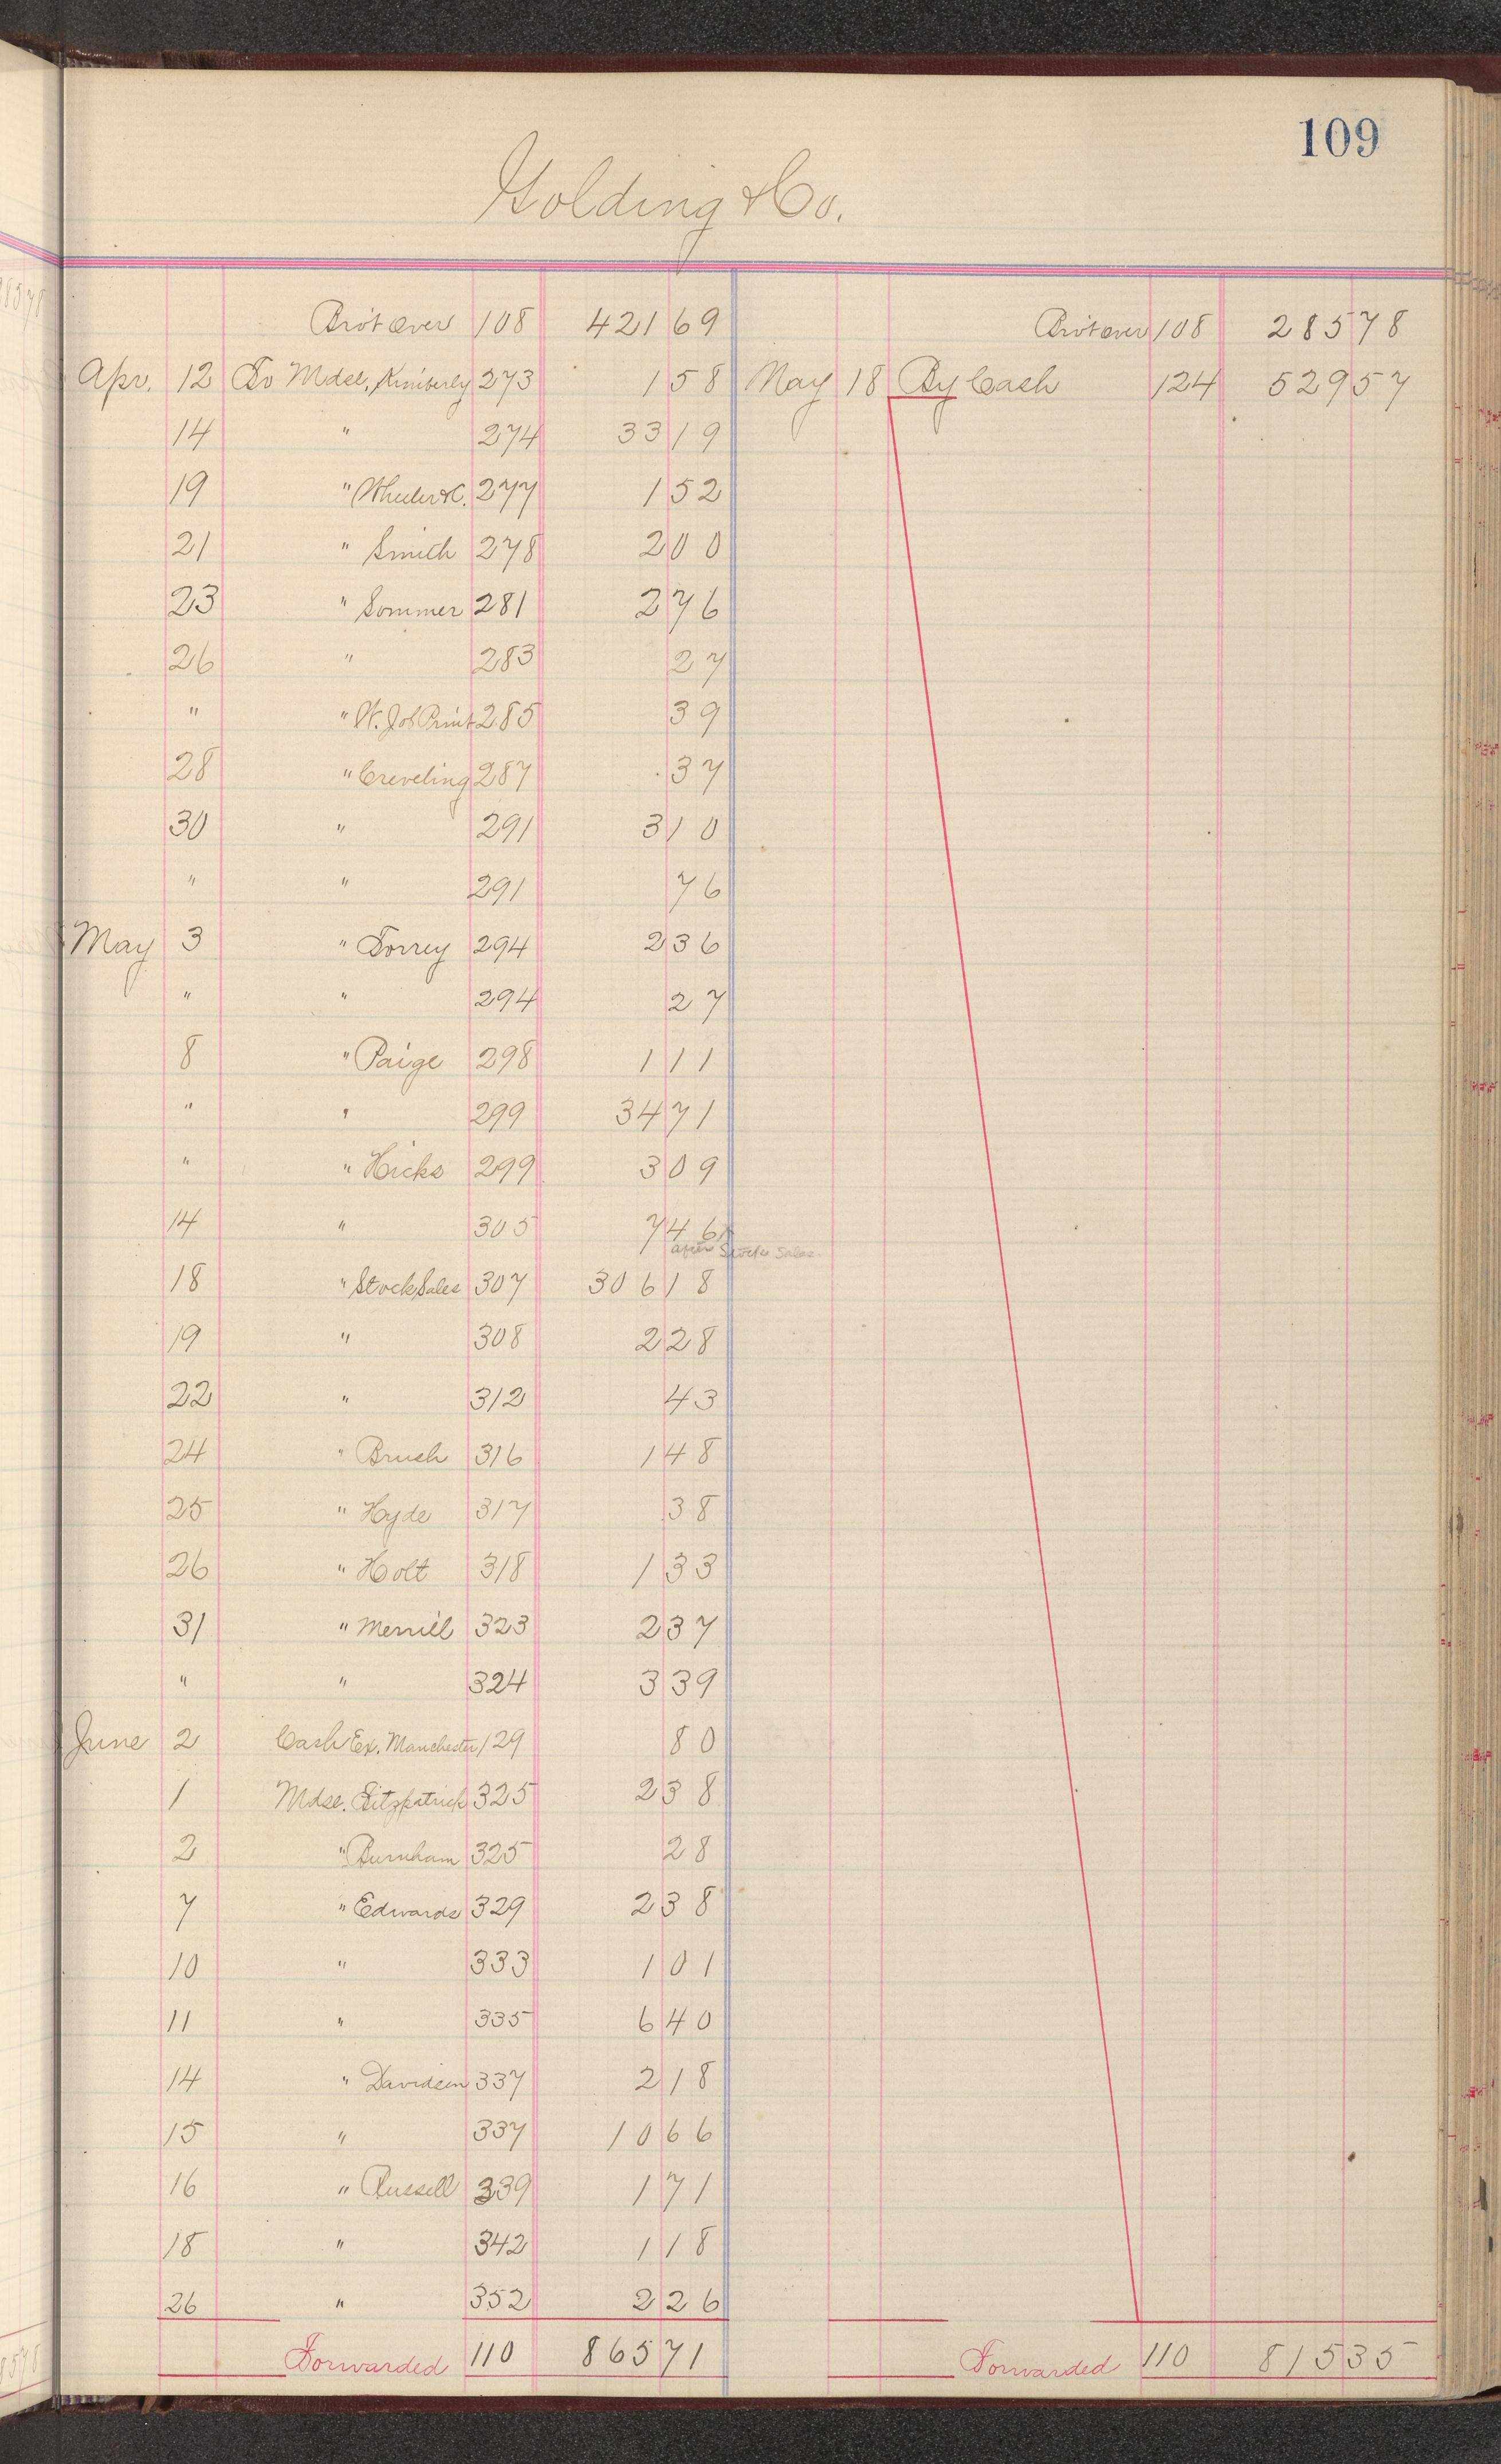 109
Golding & Co.
Bro't over 108 421 69 Bro't over 108 285 78
Apr. 12 To Mdse. Kimberly 273 1 58 May 18 By Cash 124 529 57
14 " 274 33 19
19 " Wheeler & C. 277 1 52
21 " Smith 278 2 00
23 " Sommer 281 2 76
26 " 283 27
" " W. Job Print 285 39
28 " Creveling 287 37
30 " 291 3 10
" " 291 76
May 3 " Torrey 294 2 36
" " 294 27
8 " Paige 298 1 11
" " 299 34 71
" " Hicks 299 3 09
14 " 305 7 46
after Stock Sales
18 " Stock Sales 307 306 18
19 " 308 2 28
22 " 312 43
24 " Brush 316 1 48
25 " Hyde 317 38
26 " Holt 318 1 33
31 " Merrill 323 2 37
" " 324 3 39
June 2 Cash Ex. Manchester 129 80
1 Mdse. Fitzpatrick 325 2 38
2 " Burnham 325 28
7 " Edwards 329 2 38
10 " 333 1 01
11 " 335 6 40
14 " Davidson 337 2 18
15 " 337 10 66
16 " Russell 339 1 71
18 " 342 1 18
26 " 352 2 26
Forwarded 110 865 71 Forwarded 110 815 35